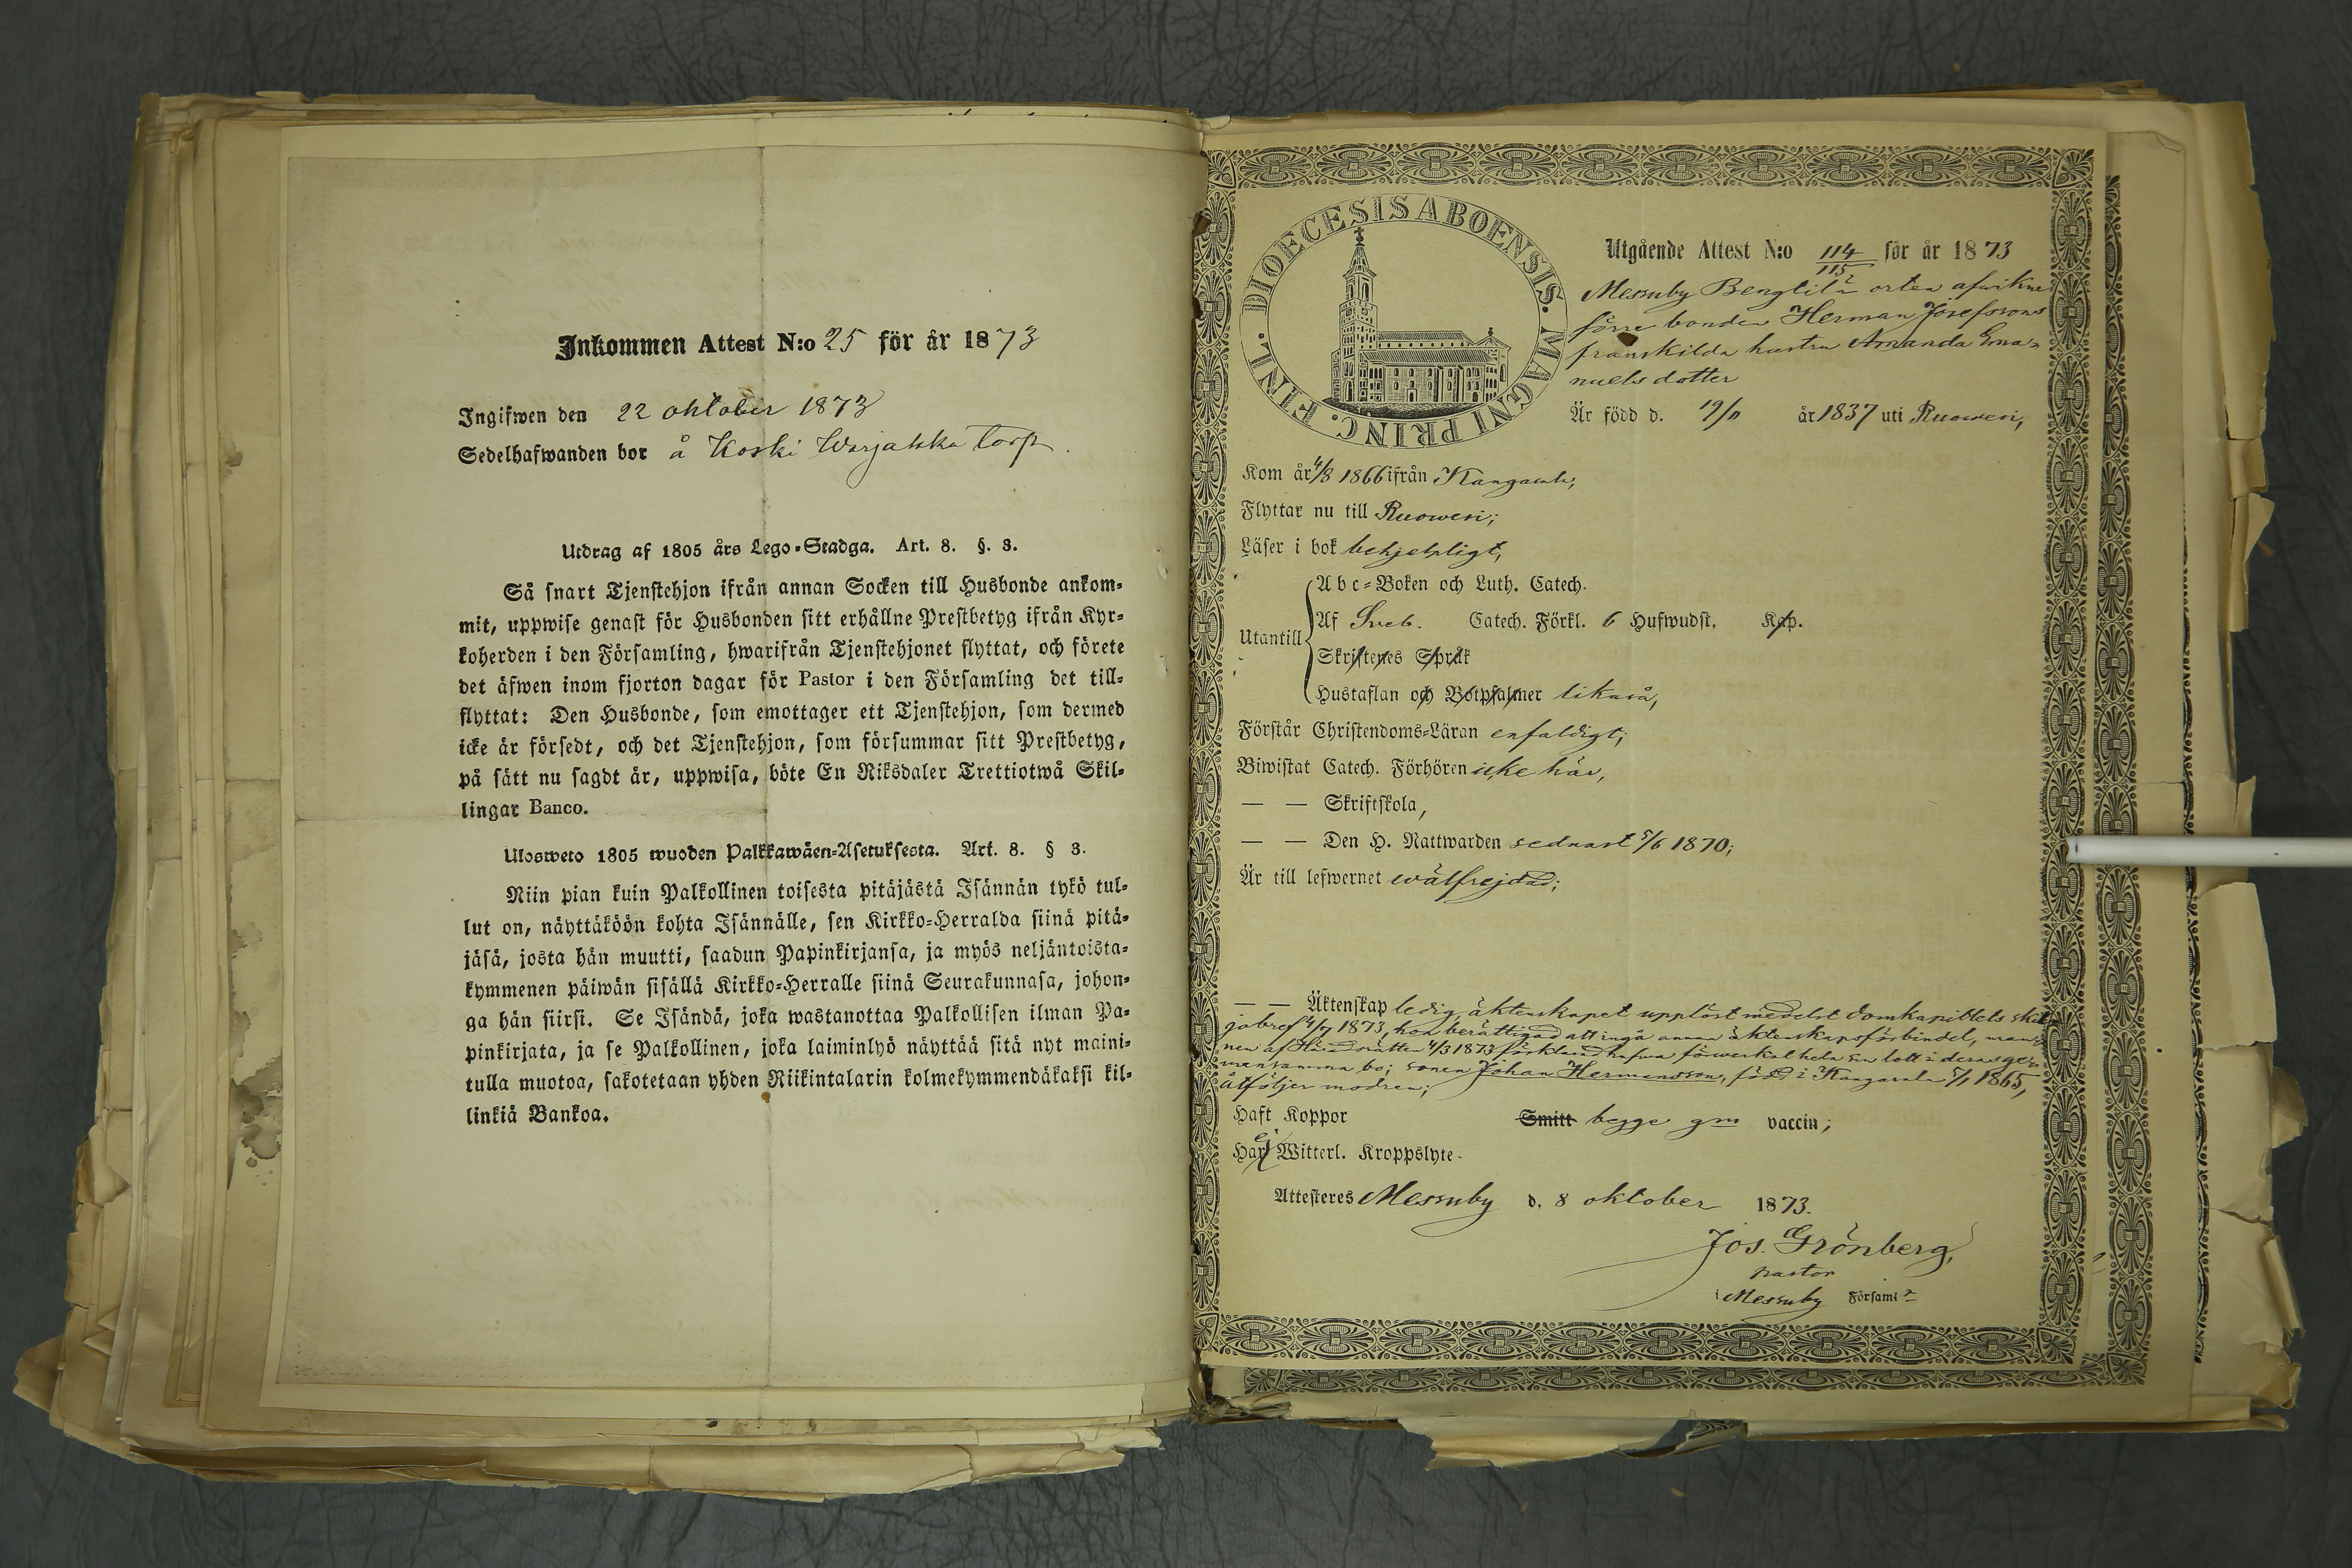 Inkommen Attest N:o 25 för år 1873
Ingifwen den 22 oktober 1873
Sedelhafwanden bor å Koski Warjakka torp.
Utdrag af 1805 års Lego-Stadga. Art. 8. §. 3.
Så snart Tjenstehjon ifrån annan Socken till Husbonde ankom-
mit, uppwise genast för Husbonden sitt erhållne Prestbetyg ifrån Kyr-
koherden i den Församling, hwarifrån Tjenstehjonet flyttat, och förete
det äfwen inom fjorton dagar för Pastor i den Församling det till-
flyttat: Den Husbonde, som emottager ett Tjenstehjon, som dermed
icke är försedt, och det Tjenstehjon, som försummar sitt Prestbetyg,
på sätt nu sagdt är, uppwisa, böte En Riksdaler Trettiotwå Skil-
lingar Banco.
Ulosweto 1805 wuoden Palkkawäen-Asetuksesta. Art. 8. § 3.
Niin pian kuin Palkollinen toisesta pitäjästä Isännän tykö tul-
lut on, näyttäköön kohta Isännälle, sen Kirkko-Herralda siinä pitä-
jäsä, josta hän muutti, saadun Papinkirjansa, ja myös neljäntoista-
kymmenen päiwän sisällä Kirkko-Herralle siinä Seurakunnasa, johon-
ga hän siirsi. Se Isändä, joka wastanottaa Palkollisen ilman Pa-
pinkirjata, ja se Palkollinen, joka laiminlyö näyttää sitä nyt maini-
tulla muotoa, sakotetaan yhden Riikintalarin kolmekymmendäkaksi kil-
linkiä Bankoa.
DIOECESIS ABOENSIS. MAGNI PRINC. FINL.
Utgående Attest N:o 114/115 för år 1873
Messuby Bengtilä orten afwikne
förre bonden Herman Josefssons
frånskilda hustru Amanda Ema-
nuelsdotter
Är född d. 19/11 år 1837 uti Ruowesi,
Kom år 4/8 1866 ifrån Kangasala;
Flyttar nu till Ruowesi;
Läser i bok behjelpligt,
Utantill
Abc-Boken och Luth. Catech.
Af Sveb. Catech. Förkl. 6 Hufwudst. Kap.
Skriftenes Språk
Hustaflan och Botpsalmer likaså,
Förstår Christendoms-Läran enfaldigt;
Biwistat Catech. Förhören icke här,
— — Skriftskola,
— — Den H. Nattwarden sednast 5/6 1870;
Är till lefwernet wälfrejdad;
— — Äktenskap ledig, äktenskapet upplöst medelst Domkapitlets skil-
jobref 4/9 1873, hon berättigad att ingå annan äktenskapsförbindel, man-
nen af Häradsrätten 4/3 1873 förklarad hafwa förwerkat hela sin lott i deras ge-
mensamma bo; sonen Johan Hermansson, född i Kangasala 5/1 1865,
åtföljer modren;
Haft Koppor Smitt begge gm vaccin;
Har ej Witterl. Kroppslyte.
Attesteres Messuby d. 8 oktober 1873.
Jos. Grönberg,
pastor
i Messuby Församl: